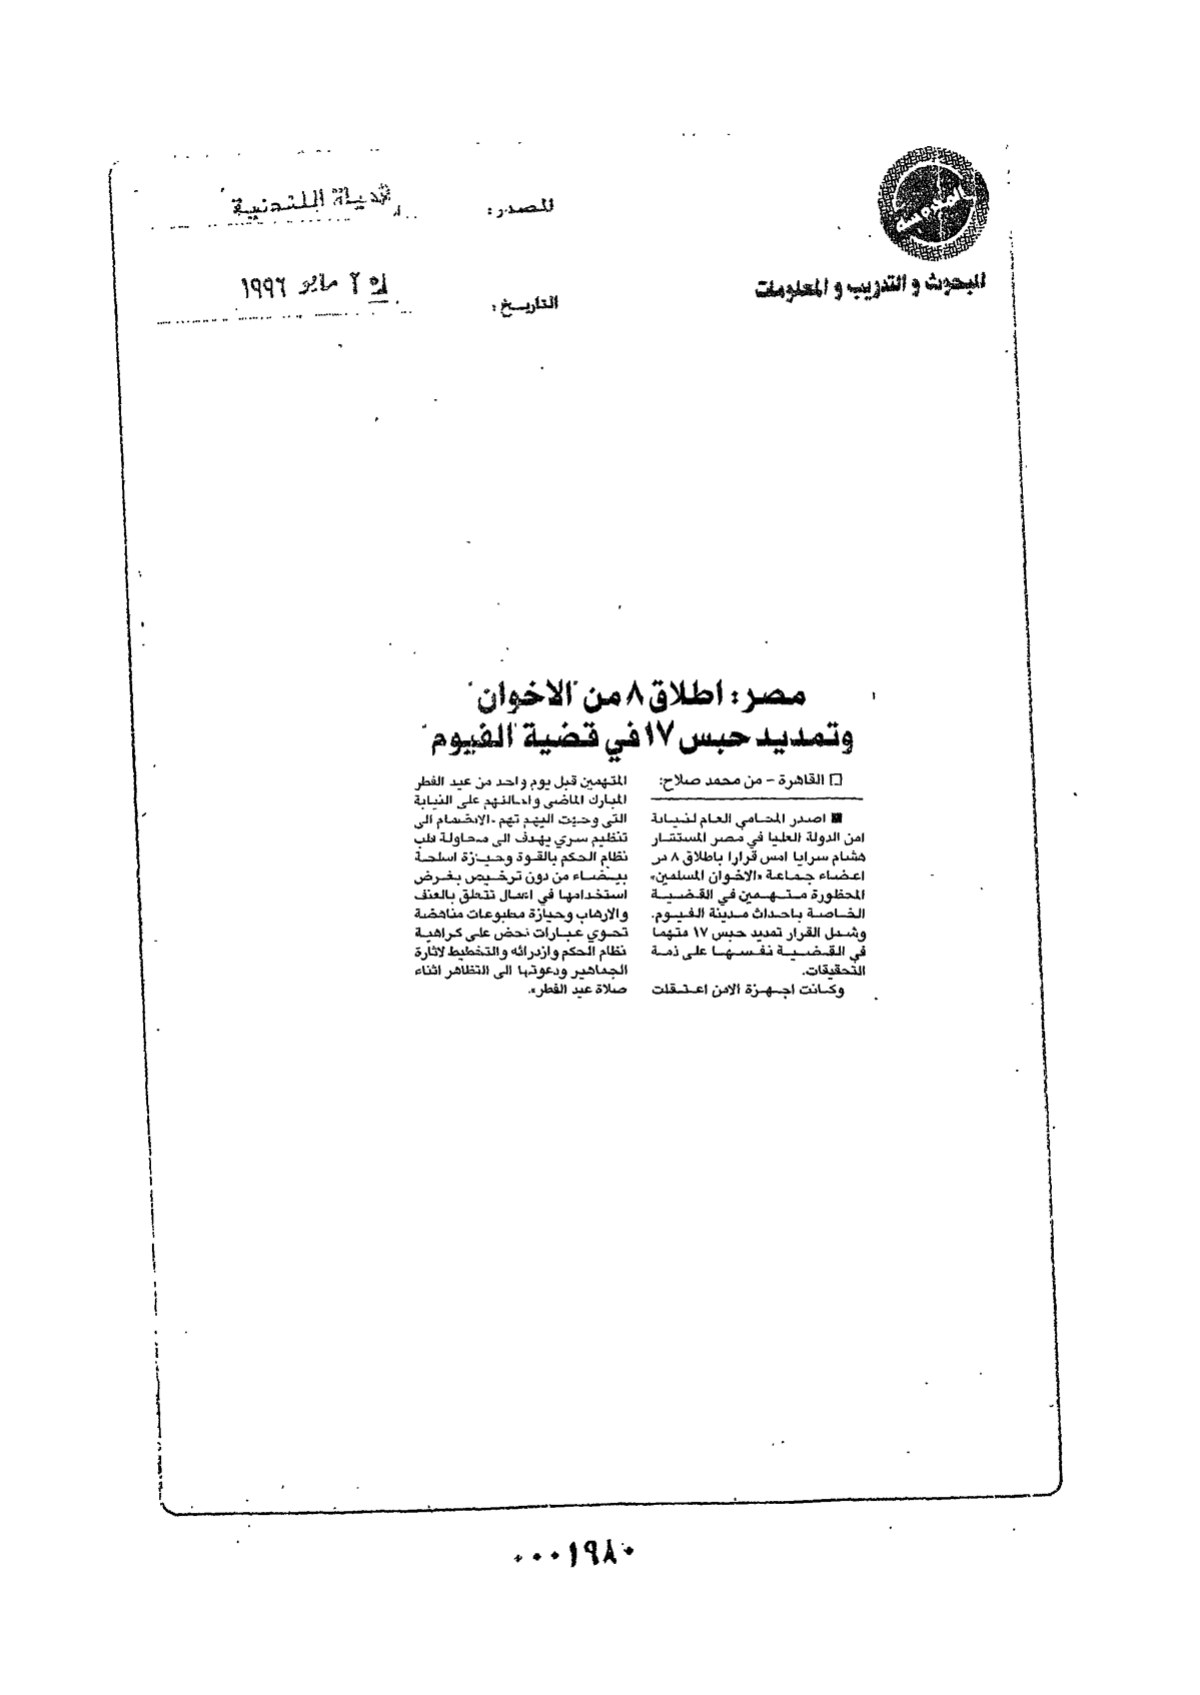 المحروسة
للبحوث و التدريب و المعلومات
المصدر: الحياة اللندنية
التاريخ: ٢ مايو ١٩٩٦
مصر: اطلاق ٨ من "الاخوان"
وتمديد حبس ١٧ في قضية "الفيوم"
□ القاهرة - من محمد صلاح:
■ اصدر المحامي العام لنيابة
امن الدولة العليا في مصر المستشار
هشام سرايا امس قرارا باطلاق ٨ من
اعضاء جماعة «الاخوان المسلمين»
المحظورة متهمين في القضية
الخاصة باحداث مدينة الفيوم.
وشمل القرار تمديد حبس ١٧ متهما
في القضية نفسها على ذمة
التحقيقات.
وكانت اجهزة الامن اعتقلت
المتهمين قبل يوم واحد من عيد الفطر
المبارك الماضي واحالتهم على النيابة
التي وجهت اليهم تهم «الانضمام الى
تنظيم سري يهدف الى محاولة قلب
نظام الحكم بالقوة وحيازة اسلحة
بيضاء من دون ترخيص بغرض
استخدامها في اعمال تتعلق بالعنف
والارهاب وحيازة مطبوعات مناهضة
تحوي عبارات تحض على كراهية
نظام الحكم وازدرائه والتخطيط لاثارة
الجماهير ودعوتها الى التظاهر اثناء
صلاة عيد الفطر».
٠٠٠١٩٨٠